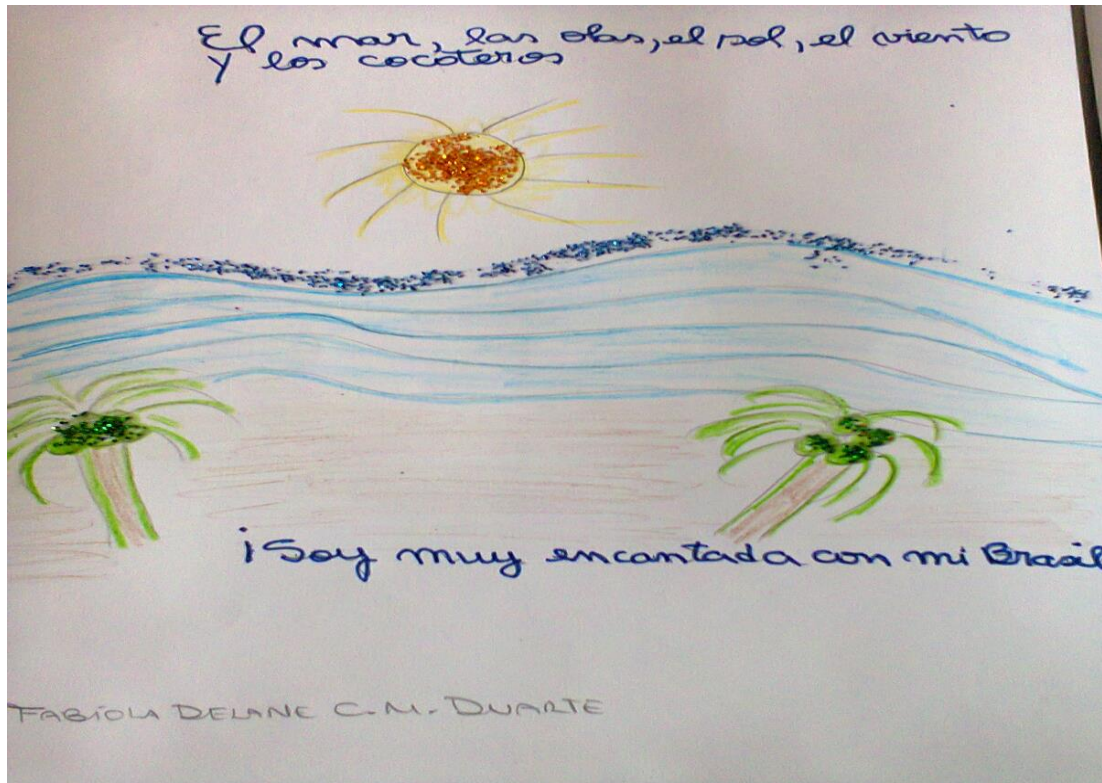 El mar, las olas, el sol, el viento
y los cocoteros
¡Soy muy encantada con mi Brasil
FABÍOLA DELANE C.M. DUARTE